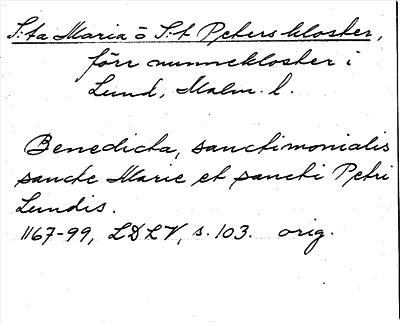 S:ta Maria o S:t Peters kloster,
förr nunnekloster i
Lund, Malm. l.
Benedicta, sanctimonialis
sancte Marie et sancti Petri
Lundis.
1167-99, LDLV, s. 103. orig.